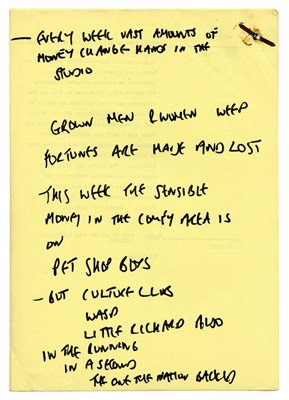 — EVERY WEEK VAST AMOUNTS OF
MONEY CHANGE HANDS IN THE
STUDIO
GROWN MEN & WOMEN WEEP
FORTUNES ARE MADE AND LOST
THIS WEEK THE SENSIBLE
MONEY IN THE COMFY AREA IS
ON
PET SHOP BOYS
— BUT CULTURE CLUB
WASP
LITTLE RICHARD ALSO
IN THE RUNNING
IN A SECOND
THE ONE THE NATION BACKED